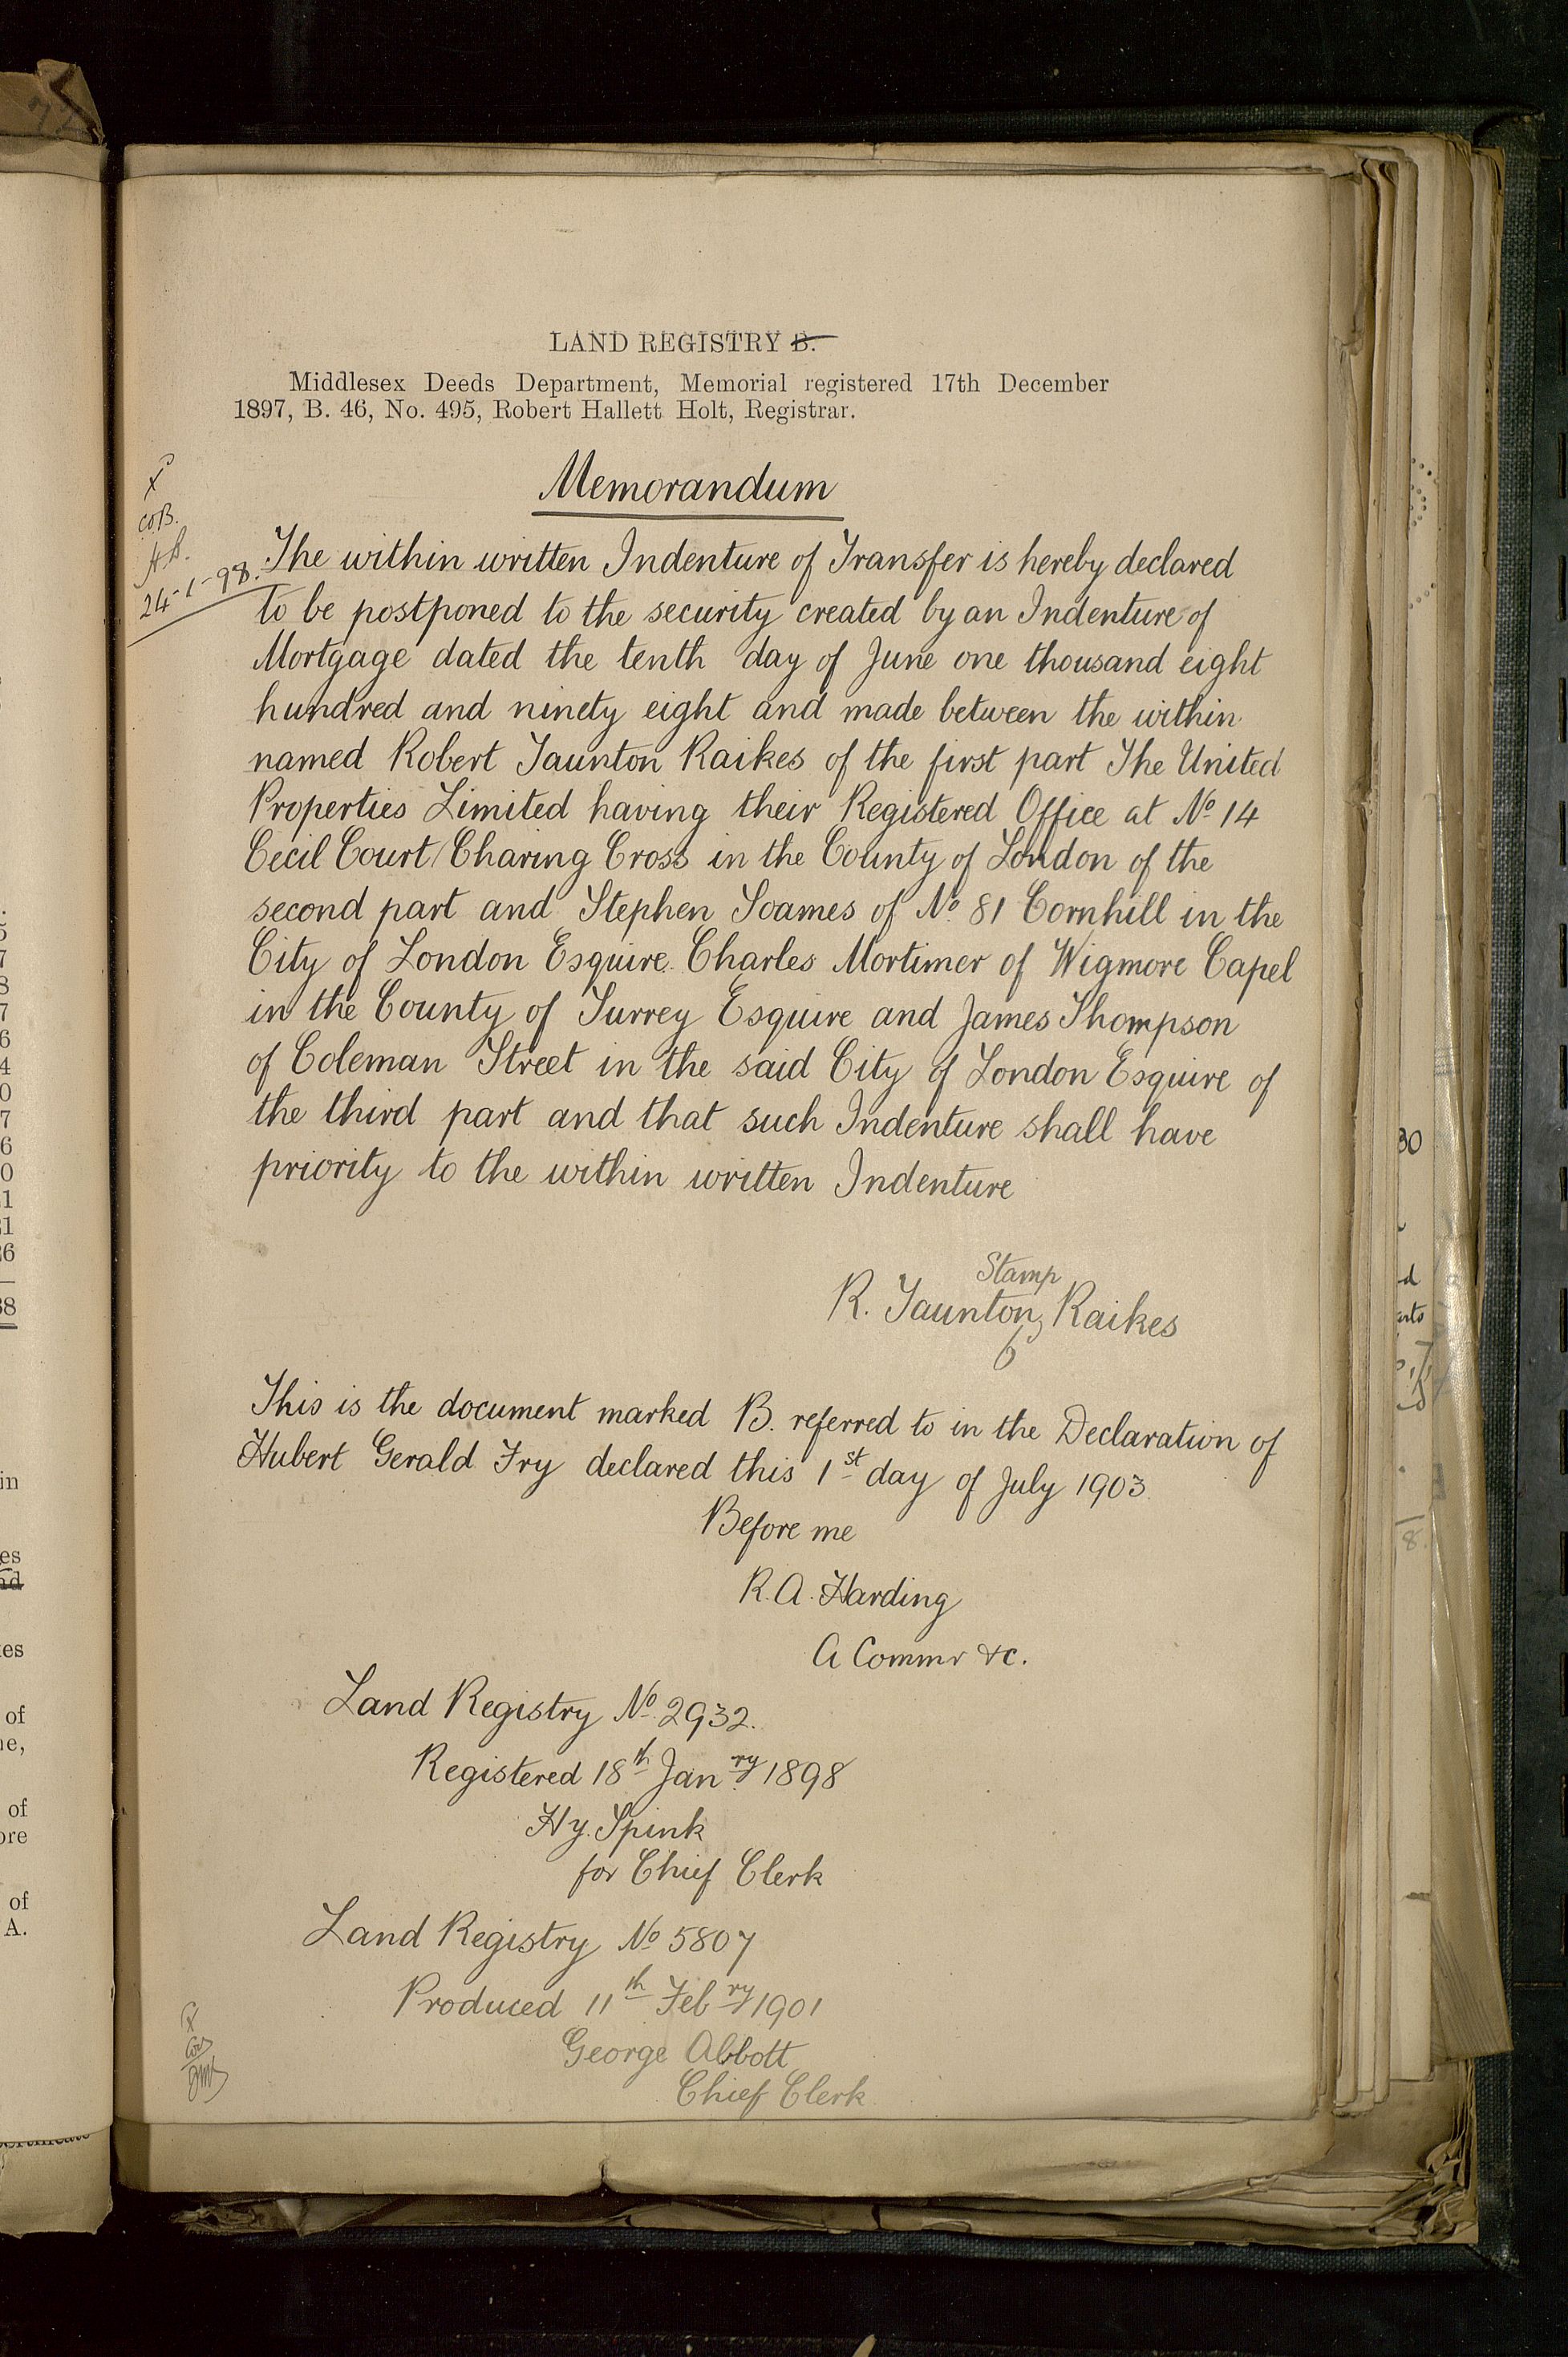 LAND REGISTRY B.
Middlesex Deeds Department, Memorial registered 17th December
1897, B. 46, No. 495, Robert Hallett Holt, Registrar.
Memorandum
24-1-98.
The within written Indenture of Transfer is hereby declared
to be postponed to the security created by an Indenture of
Mortgage dated the tenth day of June one thousand eight
hundred and ninety eight and made between the within
named Robert Taunton Raikes of the first part The United
Properties Limited having their Registered Office at No 14
Cecil Court Charing Cross in the County of London of the
second part and Stephen Soames of No 81 Cornhill in the
City of London Esquire Charles Mortimer of Wigmore Capel
in the County of Surrey Esquire and James Thompson
of Coleman Street in the said City of London Esquire of
the third part and that such Indenture shall have
priority to the within written Indenture
Stamp
R. Taunton Raikes
6
This is the document marked B. referred to in the Declaration of
Hubert Gerald Fry declared this 1st day of July 1903
Before me
R. A. Harding
A Commr &c.
Land Registry No 2932.
Registered 18th Janry 1898
Hy. Spink
for Chief Clerk
Land Registry No 5807
Produced 11th Febry 1901
George Abbott
Chief Clerk